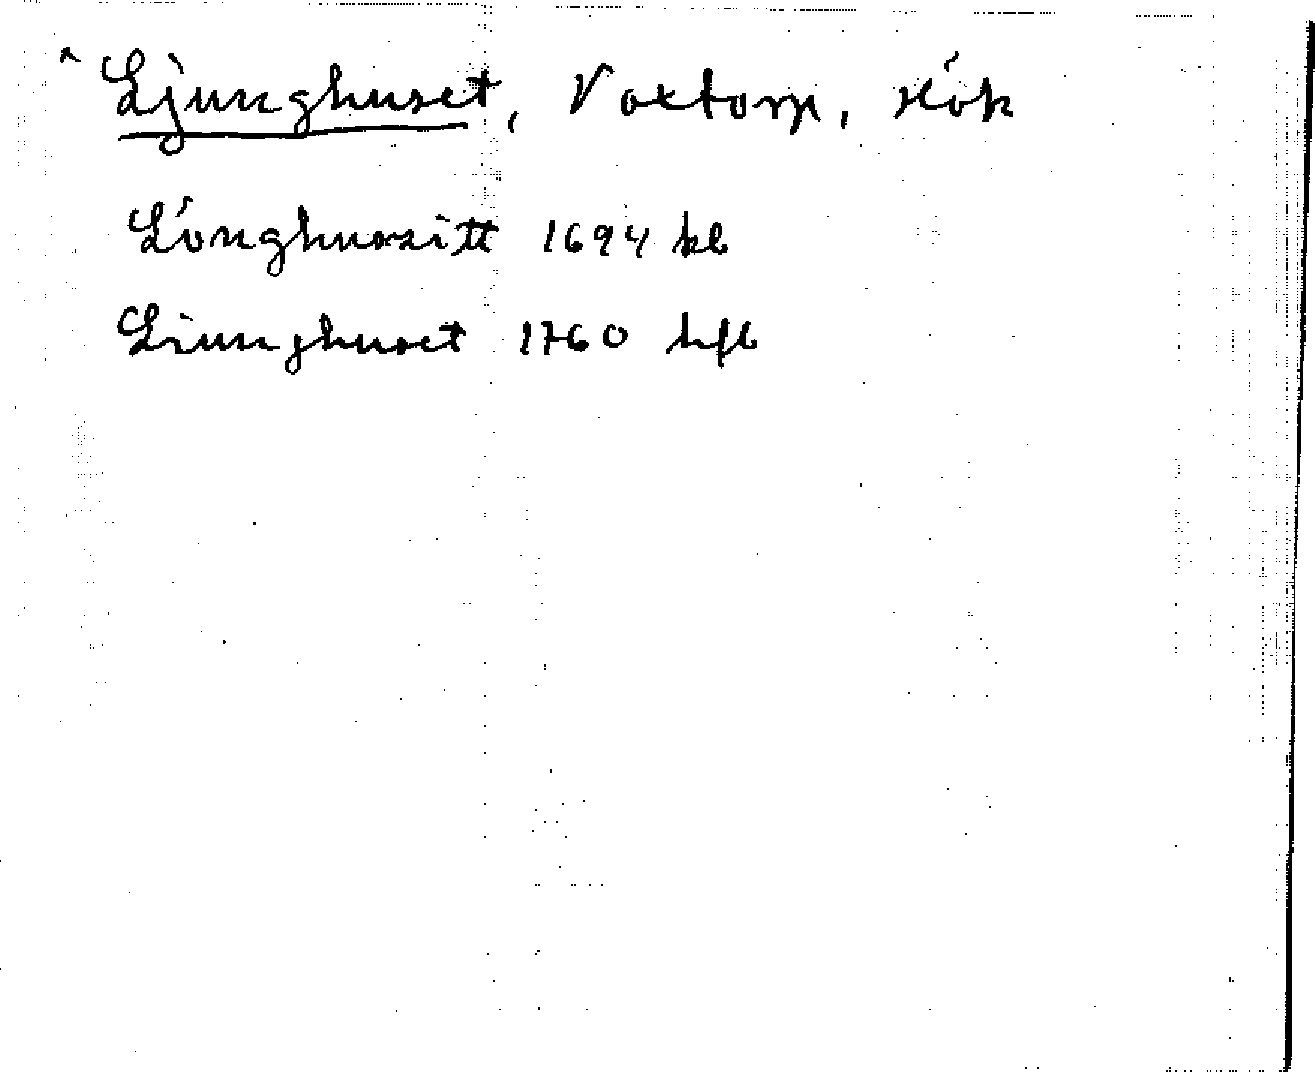 ^ Ljunghuset, Voxtorp,
Lönghussitt 1694 kb
Liunghuset 1760 hfl